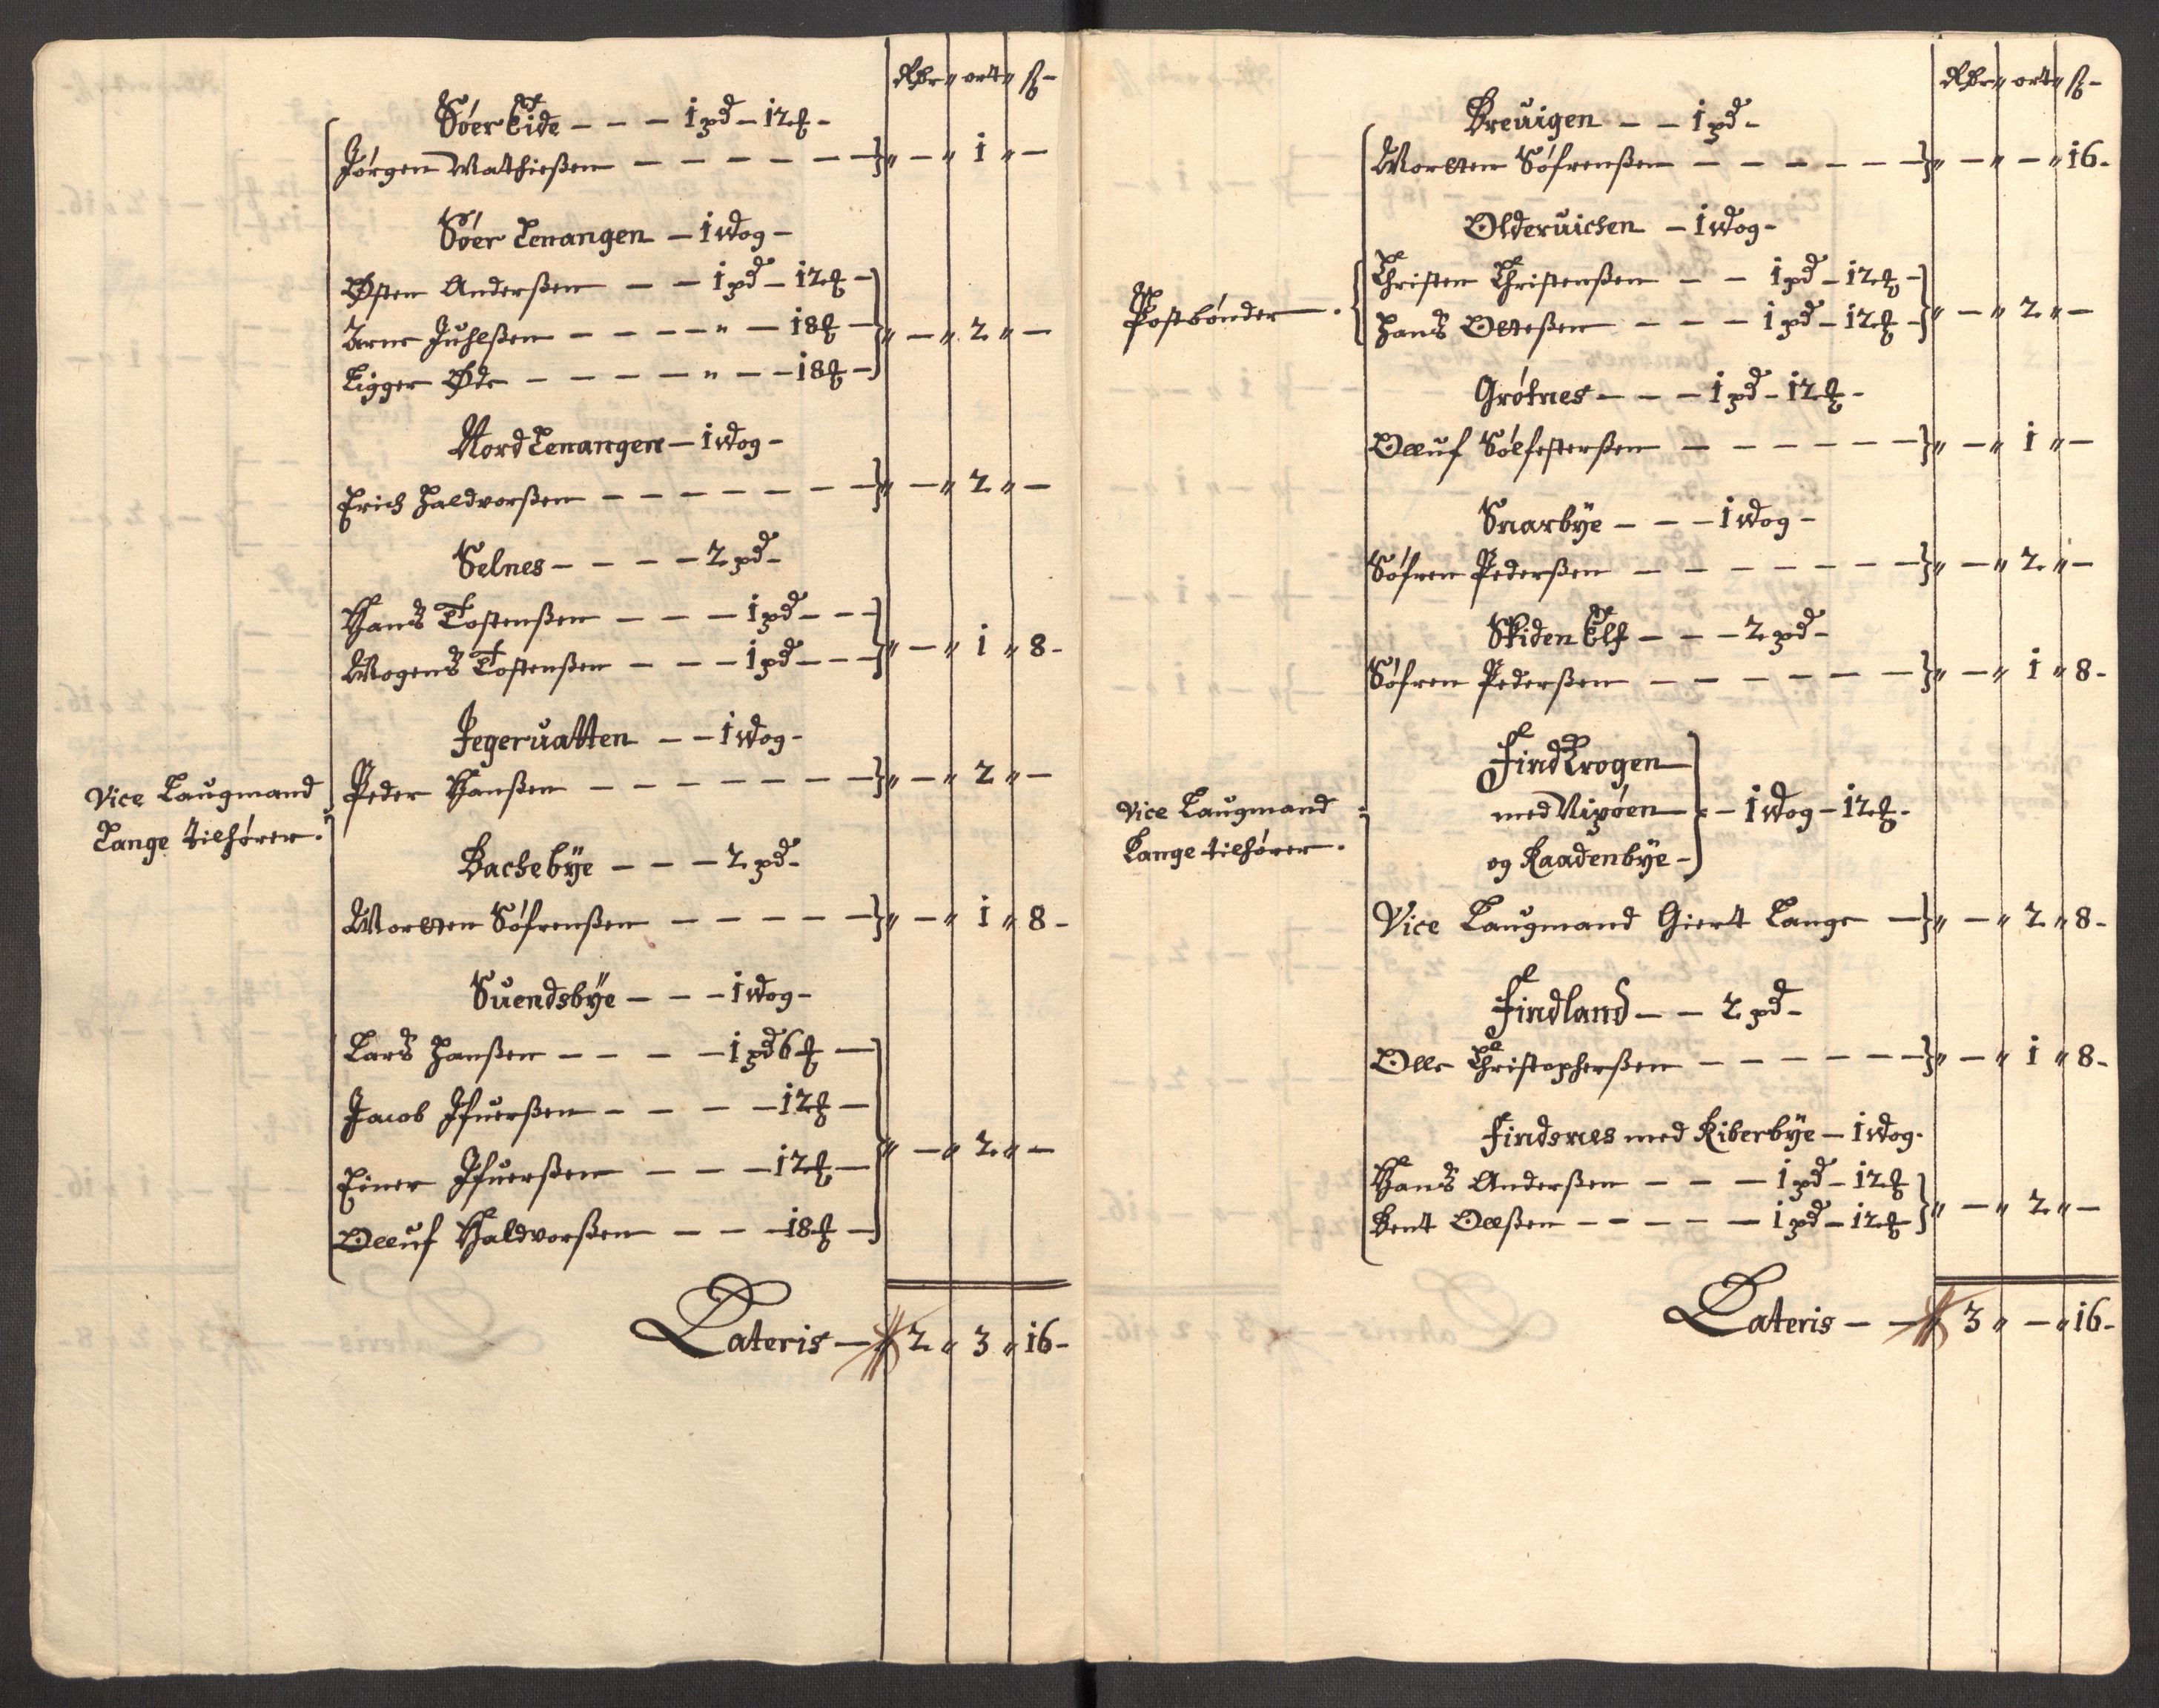 Rdr " ort " ß -
Søer Eide - - - 1 pd - 12 ℔ -
Jørgen Mathiesßen - - - - - - } " - " 1 " -
Søer Lenangen - 1 wog -
Østen Andersßen - - 1 pd - 12 ℔ -
Arne Juhlsßen - - - - " - 18 ℔ - } " - " 2 " -
Ligger Øde - - - - - " - - 18 ℔ -
Nord Lenangen - 1 wog -
Erich Haldvorsßen - - - - - - - } " - " 2 " -
Selnes - - - - 2 pd -
Hans Tostensßen - - - 1 pd - - -
Mogens Tostensßen - - - 1 pd - - - } " - " 1 " 8 -
Jegeruatten - - 1 wog -
Peder Hansßen - - - - - - - } " - " 2 " -
Vice Laugmand
Lange tilhører .
Bachebÿe - - - 2 pd -
Mortten Søfrensßen - - - - - } " - " 1 " 8 -
Suendsbÿe - - - 1 wog -
Lars Hansßen - - - - 1 pd 6 ℔ -
Jacob Ifuersßen - - - - 12 ℔ -
Einer Ifuersßen - - - 12 ℔ - } " - " 2 " -
Olluf Haldvorsßen - - - 18 ℔ -
Lateris - " 2 " 3 " 16 -
Rdr " ort " ß -
Breuigen - - 1 pd -
Mortten Søfrensßen - - - - - - } " - " - " 16 -
Olderuichen - 1 wog -
Postbønder - .
Christen Christensßen - - 1 pd - 12 ℔ -
Hans Ollesßen - - - 1 pd - 12 ℔ - } " - " 2 " -
Grøtnes - - - 1 pd - 12 ℔ -
Olluf Sølfestersßen - - - - - - } " - " 1 " -
Snarbÿe - - - 1 wog -
Søfren Pedersßen - - - - - - - } " - " 2 " -
Skiden Elf - - - 2 pd -
Søfren Pedersßen - - - - - - } " - " 1 " 8 -
Vice Laugmand
Lange tilhører .
Find Krogen -
med Nipøen - } - 1 wog - 12 ℔ -
og Raadenbÿe -
Vice Laugmand Giert Lange - } " - " 2 " 8 -
Findland - - 2 pd -
Olle Christophersßen - - - - - - } " - " 1 " 8 -
Findsnes med Riberbÿe - 1 wog -
Hans Andersßen - - - 1 pd - 12 ℔
Bent Ollsßen - - - - - 1 pd - 12 ℔ } " - " 2 " -
Lateris - - " 3 " - " 16 -